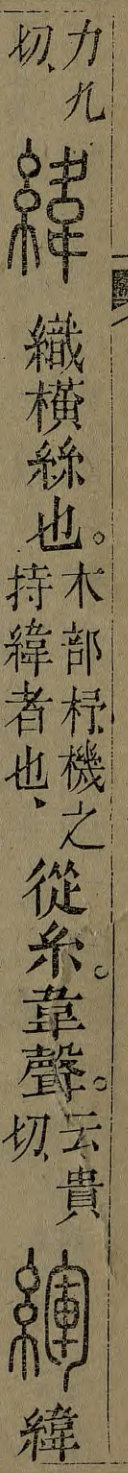 力九切、緯織橫絲也。木部杼機之持緯者也、從糸。韋聲。云貴切、緷緯